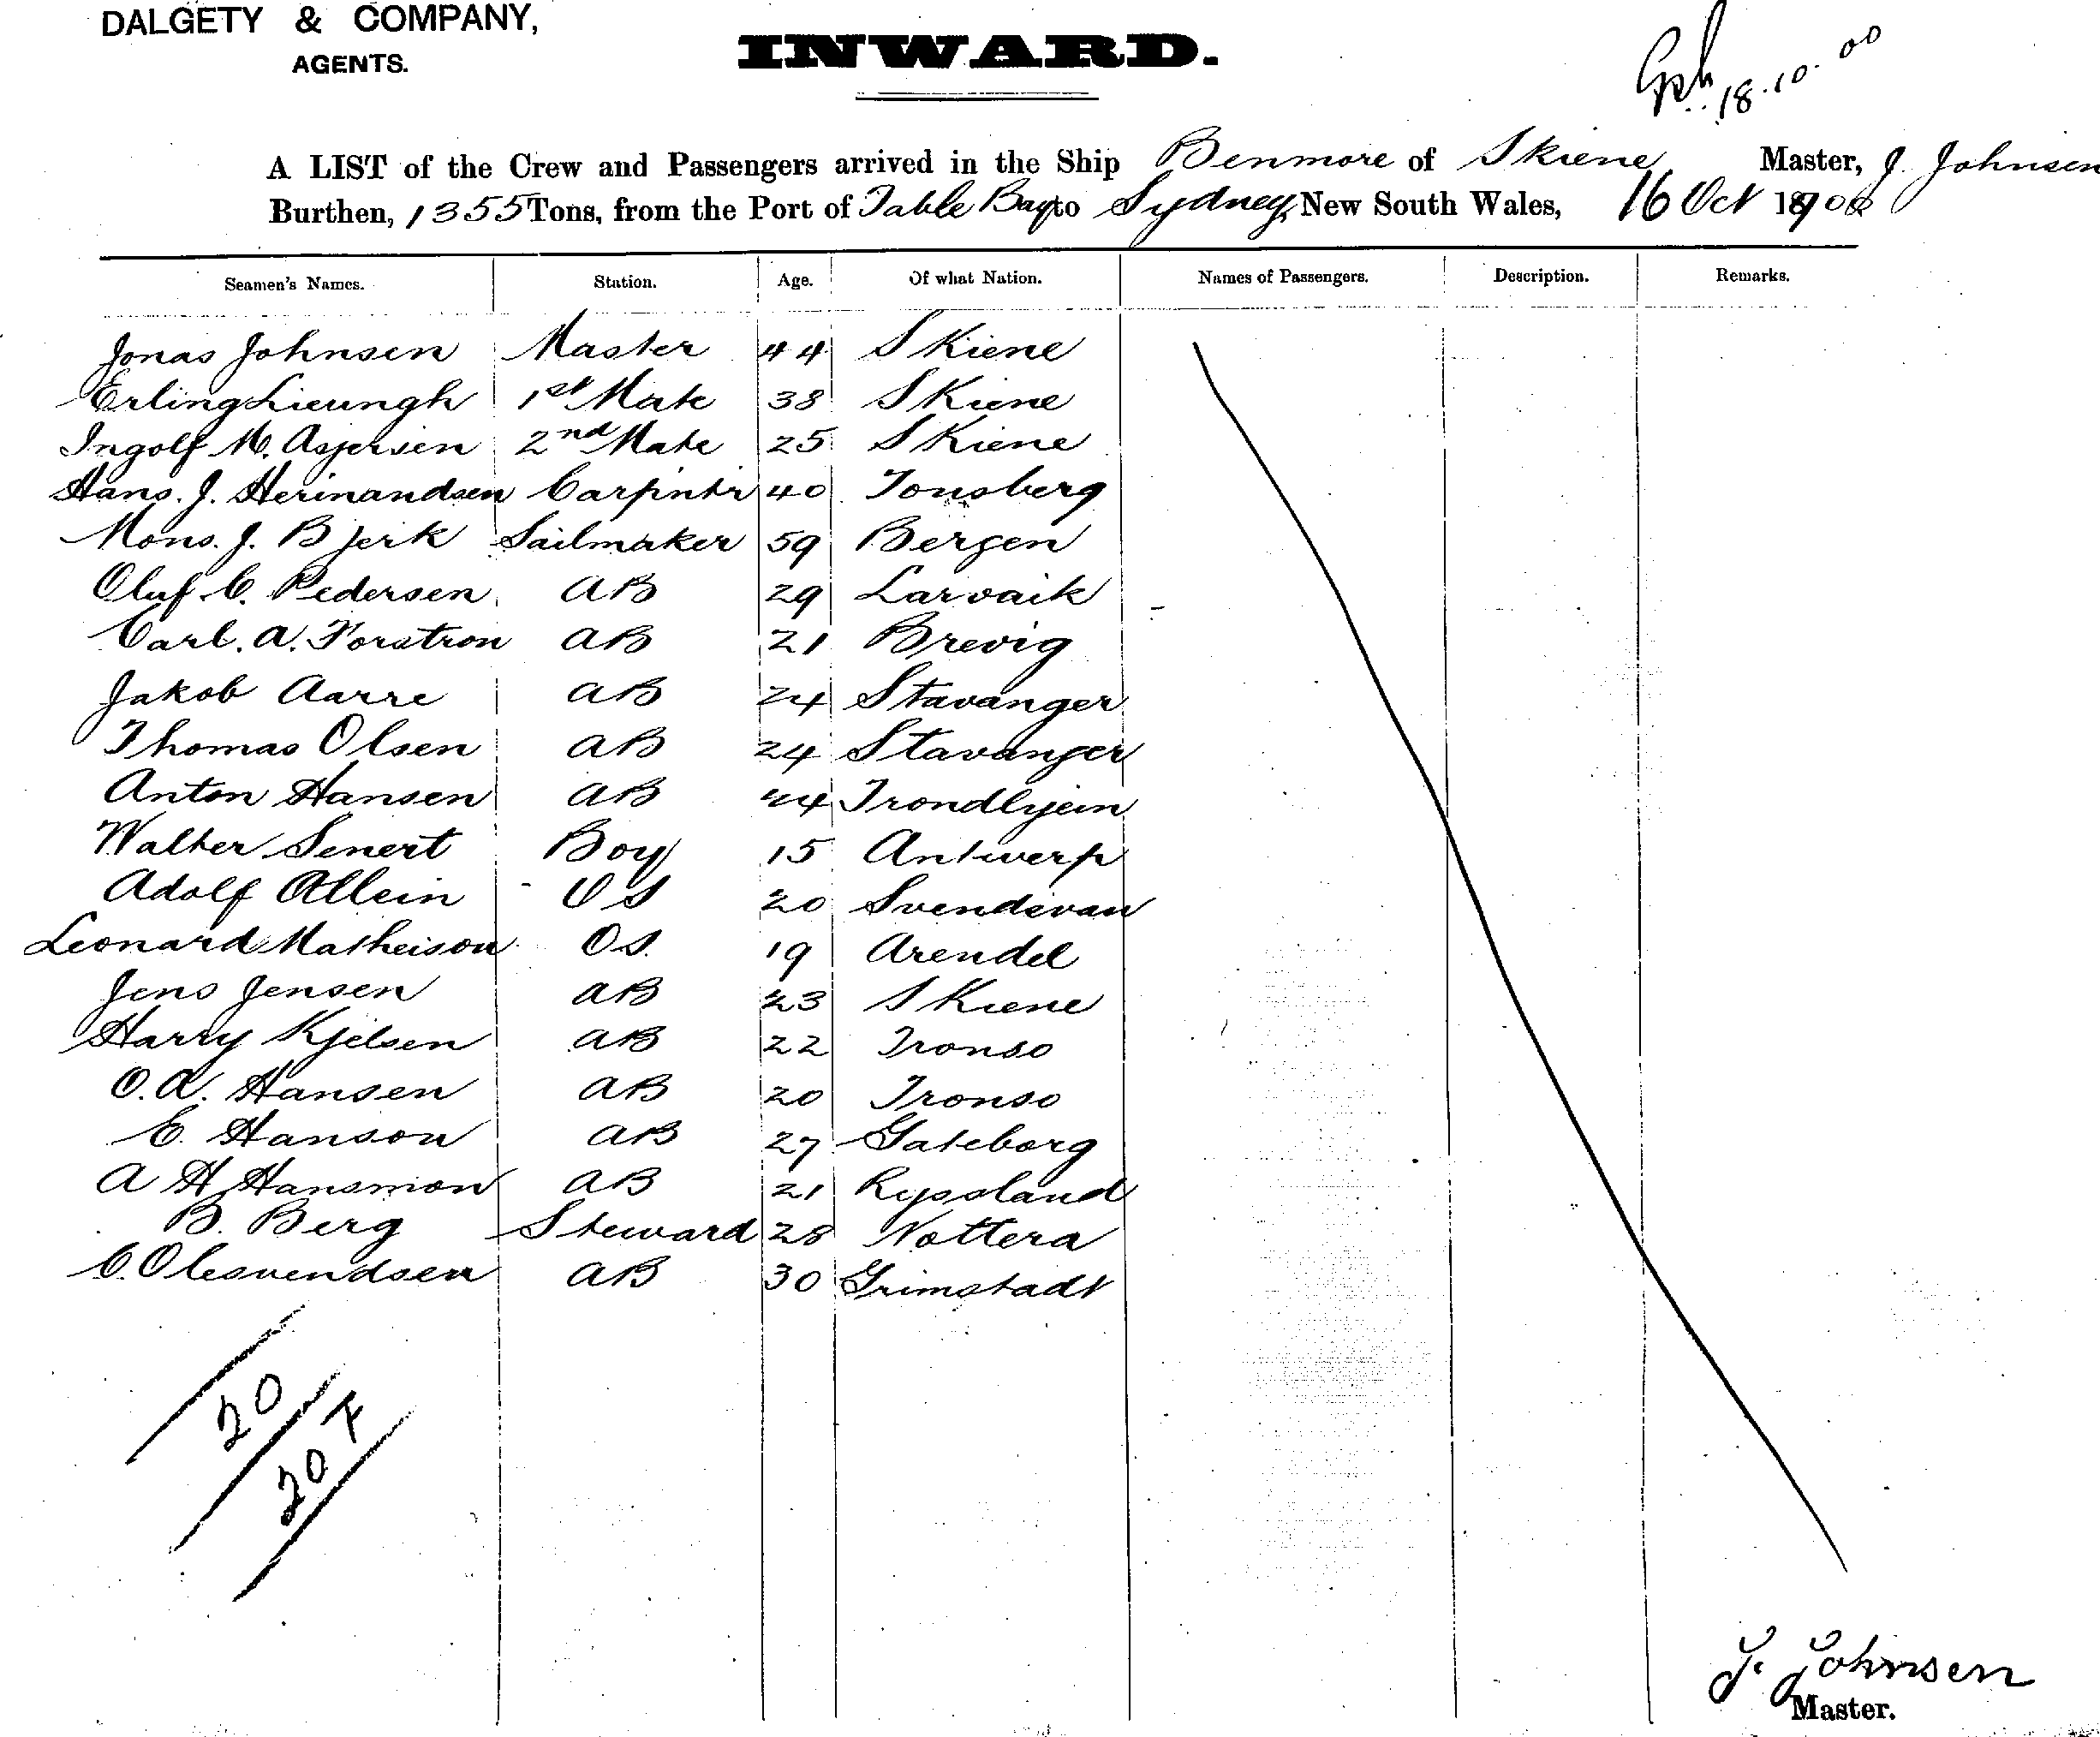 DALGETY & COMPANY,
AGENTS.
INWARD.
18.10.00
A LIST of the Crew and Passengers arrived in the Ship Benmore of Skiene Master, J. Johnsen
Burthen, 1355 Tons, from the Port of Table Bay to Sydney, New South Wales, 16 Oct 1900
Seamen's Names. Station. Age. Of what Nation. Names of Passengers. Description. Remarks.
Jonas Johnsen Master 44 Skiene
Erling Lieungh 1st Mate 38 Skiene
Ingolf M. Asjersen 2nd Mate 25 Skiene
Hans. J. Herinandsen Carpintr 40 Tonsberg
Mons. J. Bjerk Sailmaker 59 Bergen
Oluf C. Pedersen AB 29 Larvaik
Carl. A. Forstron AB 21 Brevig
Jakob Aarre AB 24 Stavanger
Thomas Olsen AB 24 Stavanger
Anton Hansen AB 44 Trondhjem
Walter Senert Boy 15 Antwerp
Adolf Allein OS 20 Svendsvan
Leonard Matheison OS. 19 Arendel
Jens Jensen AB 23 Skiene
Harry Kjelsen AB 22 Tronso
O. A. Hansen AB 20 Tronso
E. Hanson AB 27 Gateborg
A H Hansmon AB 21 Ryssland
B. Berg Steward 28 Nottera
C. Olesvendsen AB 30 Grimstadt
20
20 F
J. Johnsen
Master.